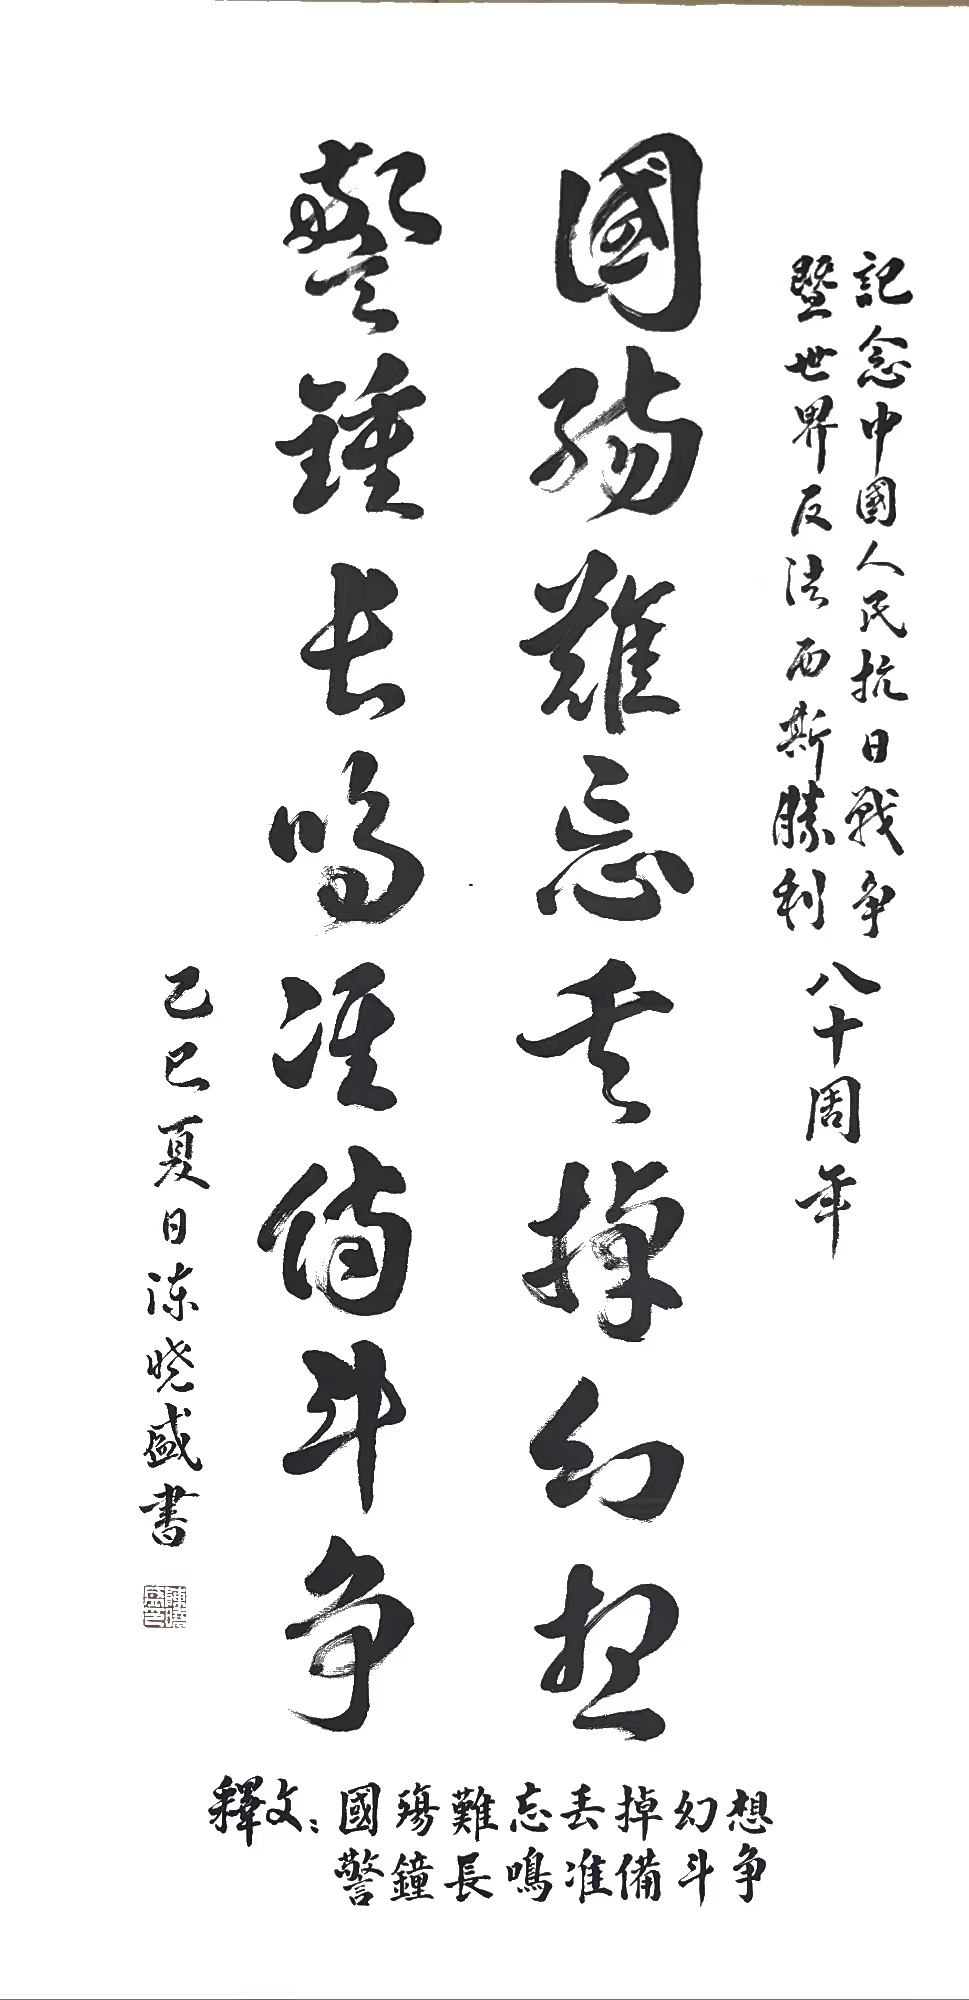 記念中國人民抗日戰争
暨世界反法西斯勝利
八十周年
國殤難忘丢掉幻想
警鐘長鳴准備斗争
乙巳夏日陈晓盛書
陳曉盛印
釋文：國殤難忘丢掉幻想
警鐘長鳴准備斗争